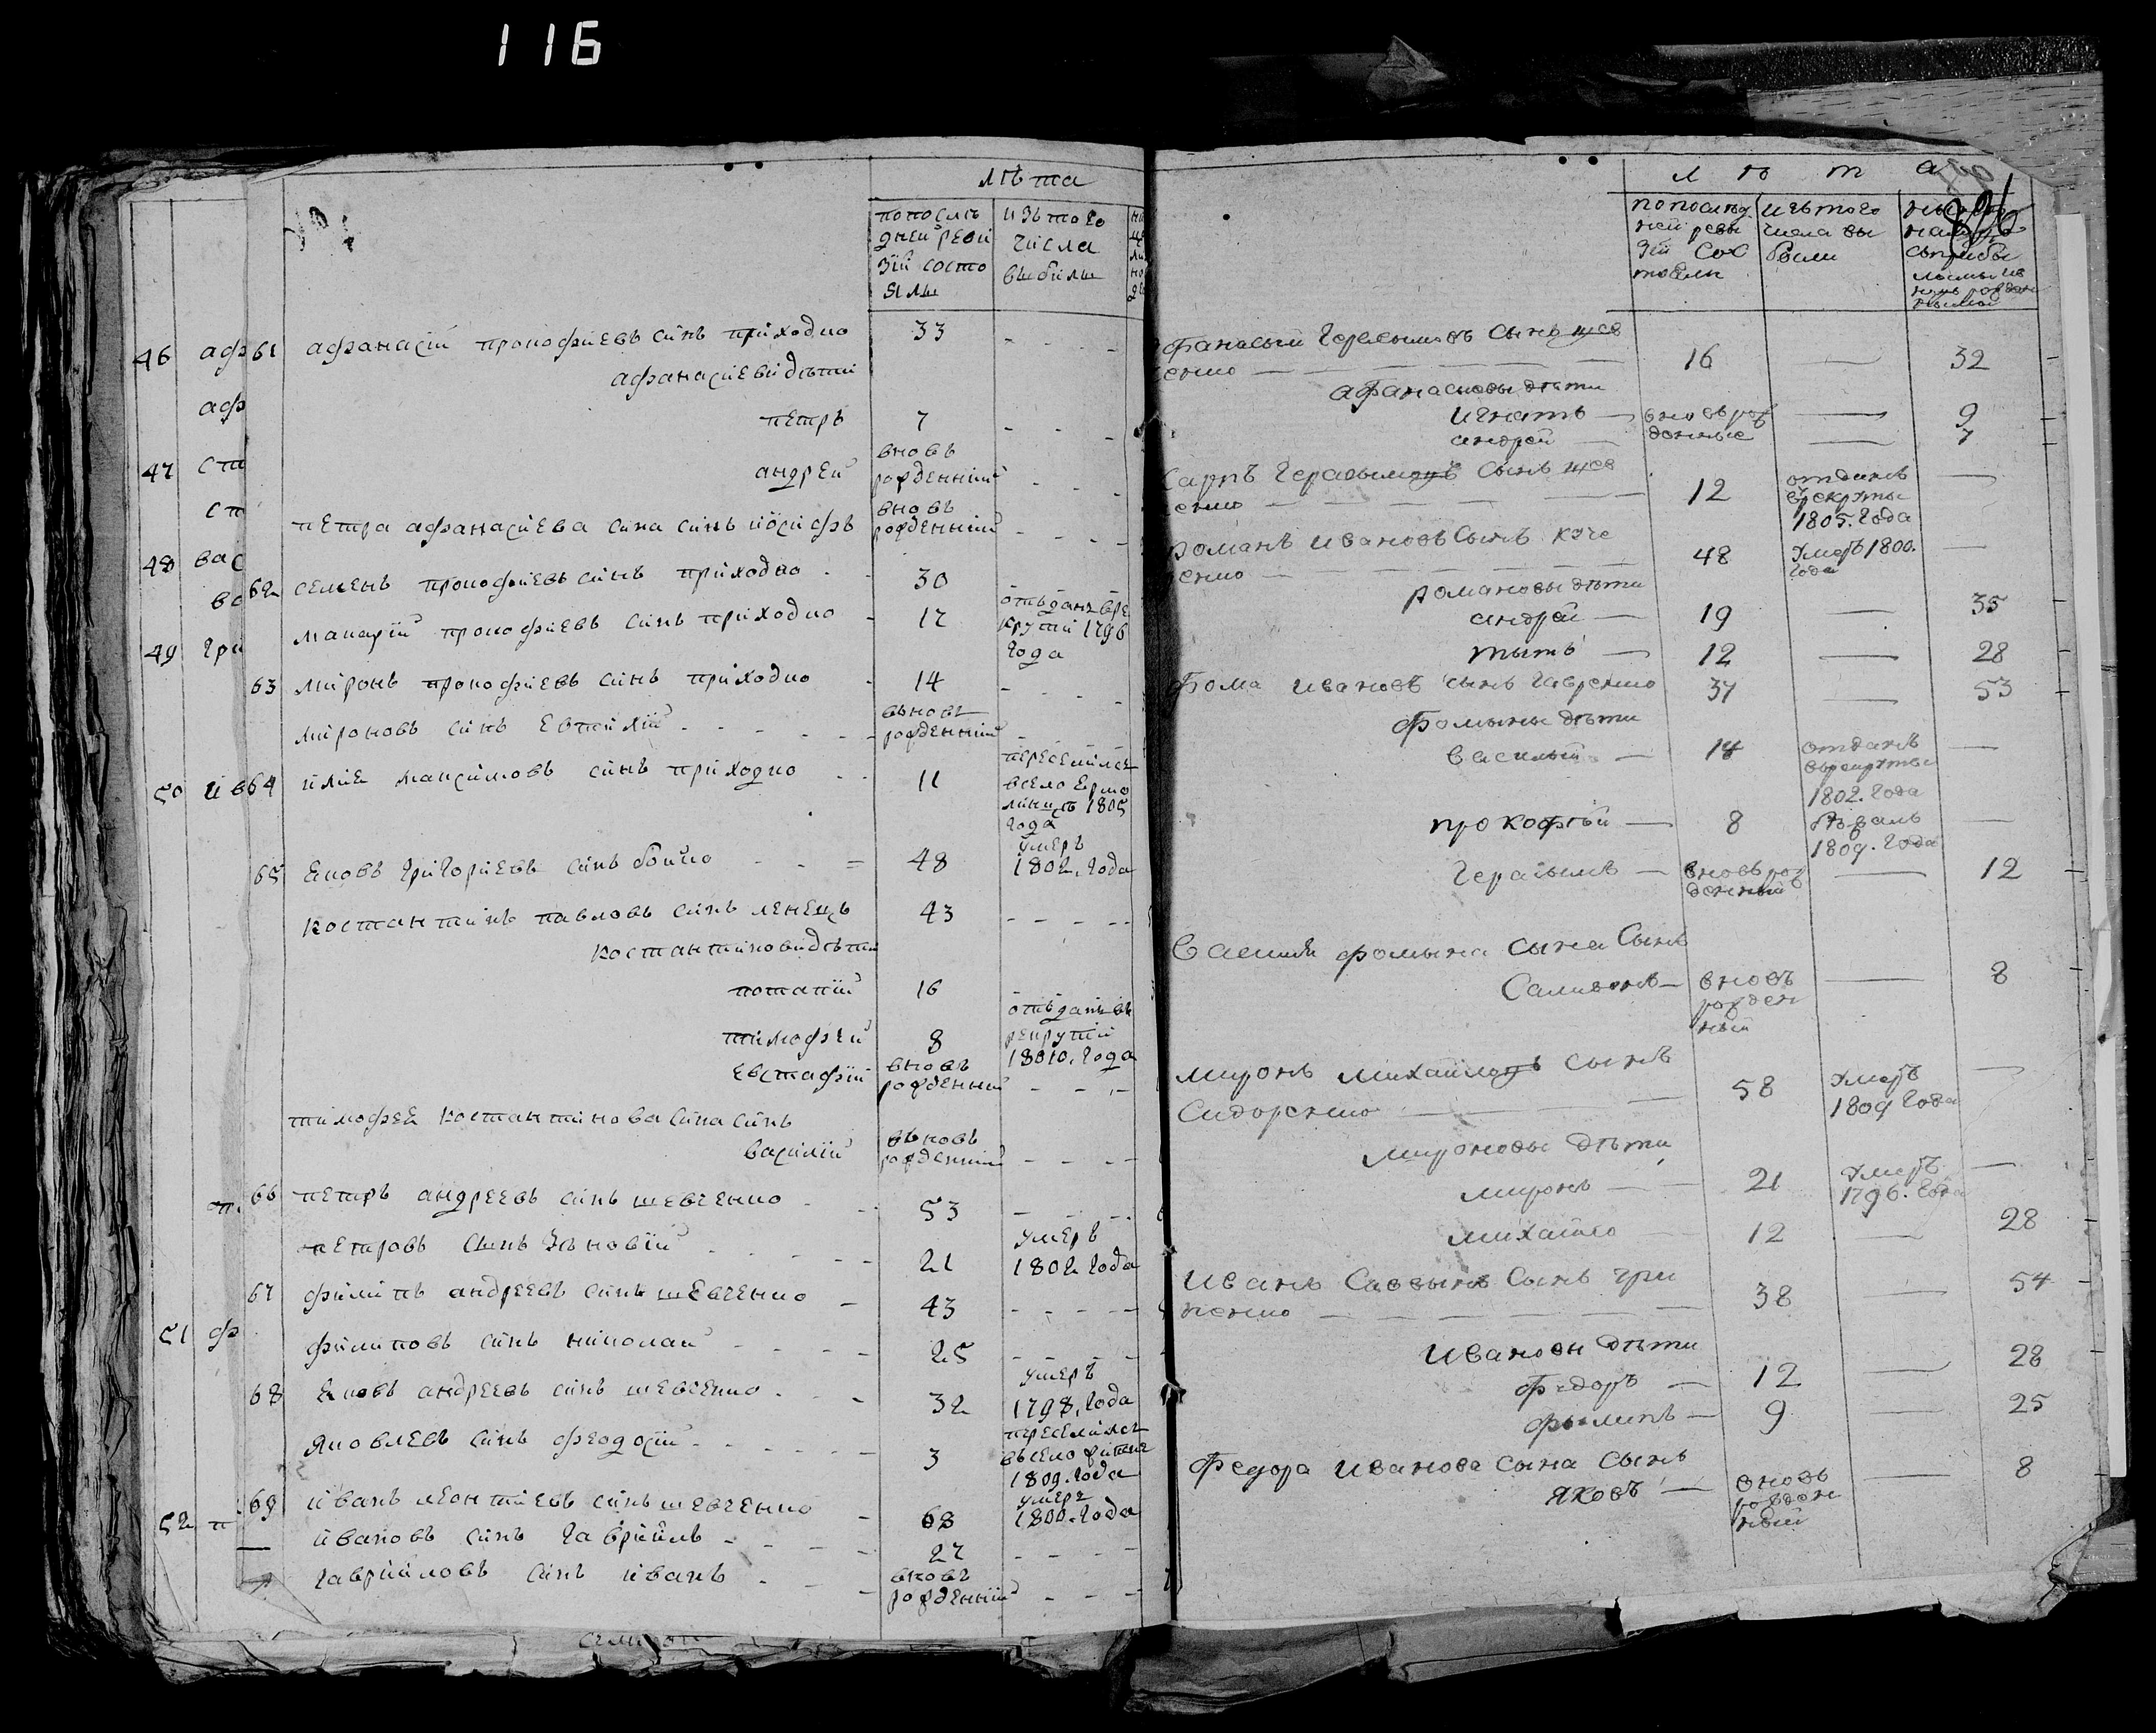 116
лѣта
попослѣ
дней реви
зій состо
яли
изъ того
числа
выбыли
46 аф
аф
47 сти
сп
48 вас
ва
49 гри
50 ив
51 ф
52 п
61 афанасій прокофиевъ синъ приходко 33
афанасиеви дѣти
петръ 7
андрей вновь
рожденний
петра афанасиева сина синъ иосифъ вновь
рожденний
62 семенъ прокофиевъ синъ приходко 30
макарій прокофиевъ синъ приходко 17 отъданъ вре
крути 1796
года
63 миронъ прокофиевъ синъ приходко 14
мироновъ синъ евтихій вьновь
рожденний
64 илия максимовъ синъ приходко 11 переселился
всело ермо
линцѣ 1805
года
65 яковъ григориевъ синъ бойко 48 умеръ
1802, года
костантинъ павловъ синъ ленецъ 43
костантинови дѣти
потапій 16
тимофей 8 отъданъ въ
рекрути
18010, года
евстафій вновь
рожденний
тимофея костантинова сина синъ
василій вьновь
рожденний
66 петръ андреевъ синъ шевченко 53
петровъ синъ зѣновій 21 умеръ
1802 года
67 филипъ андреевъ синъ шевченко 43
филиповъ синъ николай 25
68 яковъ андреевъ синъ шевченко 32 умеръ
1798, года
яковлевъ синъ феодосій 3 переселился
въсело
1809. года
69 иванъ леонтиевъ синъ шевченко 68 умеръ
1800. года
ивановъ синъ гавриилъ 27
гавриловъ синъ иванъ вновь
рожденний
лѣта
86
попослѣд
ней реви
зіи сос
тояли
изъ того
числа вы
были
фанасый герасымовъ сынъ шев
ченко 16 32
афанасиевы дѣти
игнатъ вновь рож 9
андрей денные 7
карпъ герасымовъ сынъ шев
ченко 12 отданъ
врекруты
1805. года
романъ ивановъ сынъ
48 умеръ 1800.
года
романовы дѣти
андрей 19 35
тытъ 12 28
фома ивановъ сынъ гавренко 37 53
фомыны дѣти
василый 14 отданъ
врекруты
1802. года
прокофѣй 8 бѣжалъ
1809. года
герасымъ вновь рож 12
денный
василя фомына сына сынъ
вновь 8
рожден
ный
миронъ михайловъ сынъ
сидоренко 58 умеръ
1809 года
мироновы дѣти
миронъ 21 умеръ
1796. года
михайло 12 28
иванъ саввынъ сынъ гри
ценко 38 54
ивановы дѣти
федоръ 12 28
фылипъ 9 25
федора иванова сына сынъ
яковъ вновь 8
рожден
ный